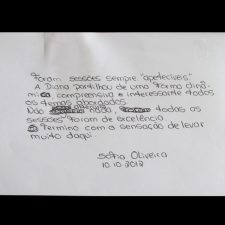 Foram sessões sempre "apetecíveis".
A Diana partilhou de uma forma dinâ-
mica compreensiva e interessante todos
os temas abordados.
Não nada, todas as
sessões foram de excelência.
Termino com a sensação de levar
muito daqui.
Sofia Oliveira
10.10.2012